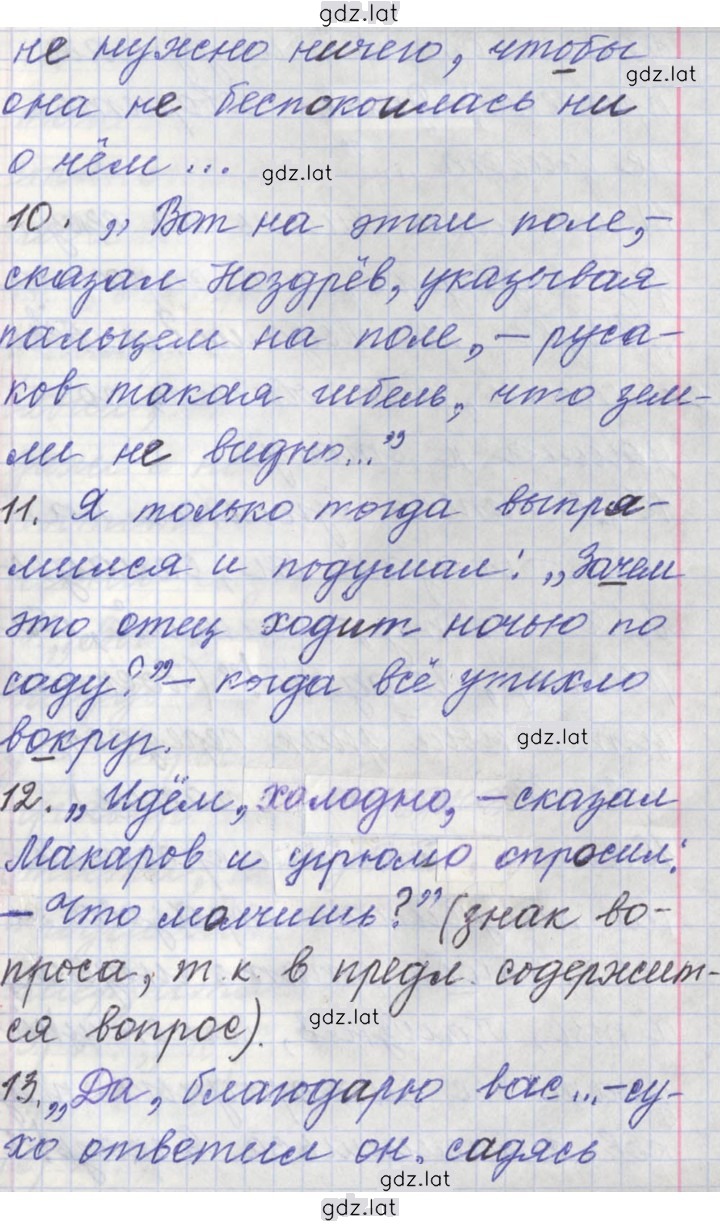 gdz.lat
не нужно ничего, чтобы
gdz.lat
она не беспокоилась ни
о нём ...
gdz.lat
10. „Вот на этом поле, –
сказал Ноздрёв, указывая
пальцем на поле, – руса-
ков такая гибель, что зем-
ли не видно...”
11. Я только тогда выпря-
мился и подумал: „Зачем
это отец ходит ночью по
саду?” – когда всё утихло
вокруг.
gdz.lat
12. „Идём, холодно, – сказал
Макаров и угрюмо спросил:
– Что молчишь?” (знак во-
проса, т.к. в предл. содержит-
ся вопрос).
gdz.lat
13. „Да, благодарю вас... – су-
хо ответил он. садясь
gdz.lat
gdz.lat